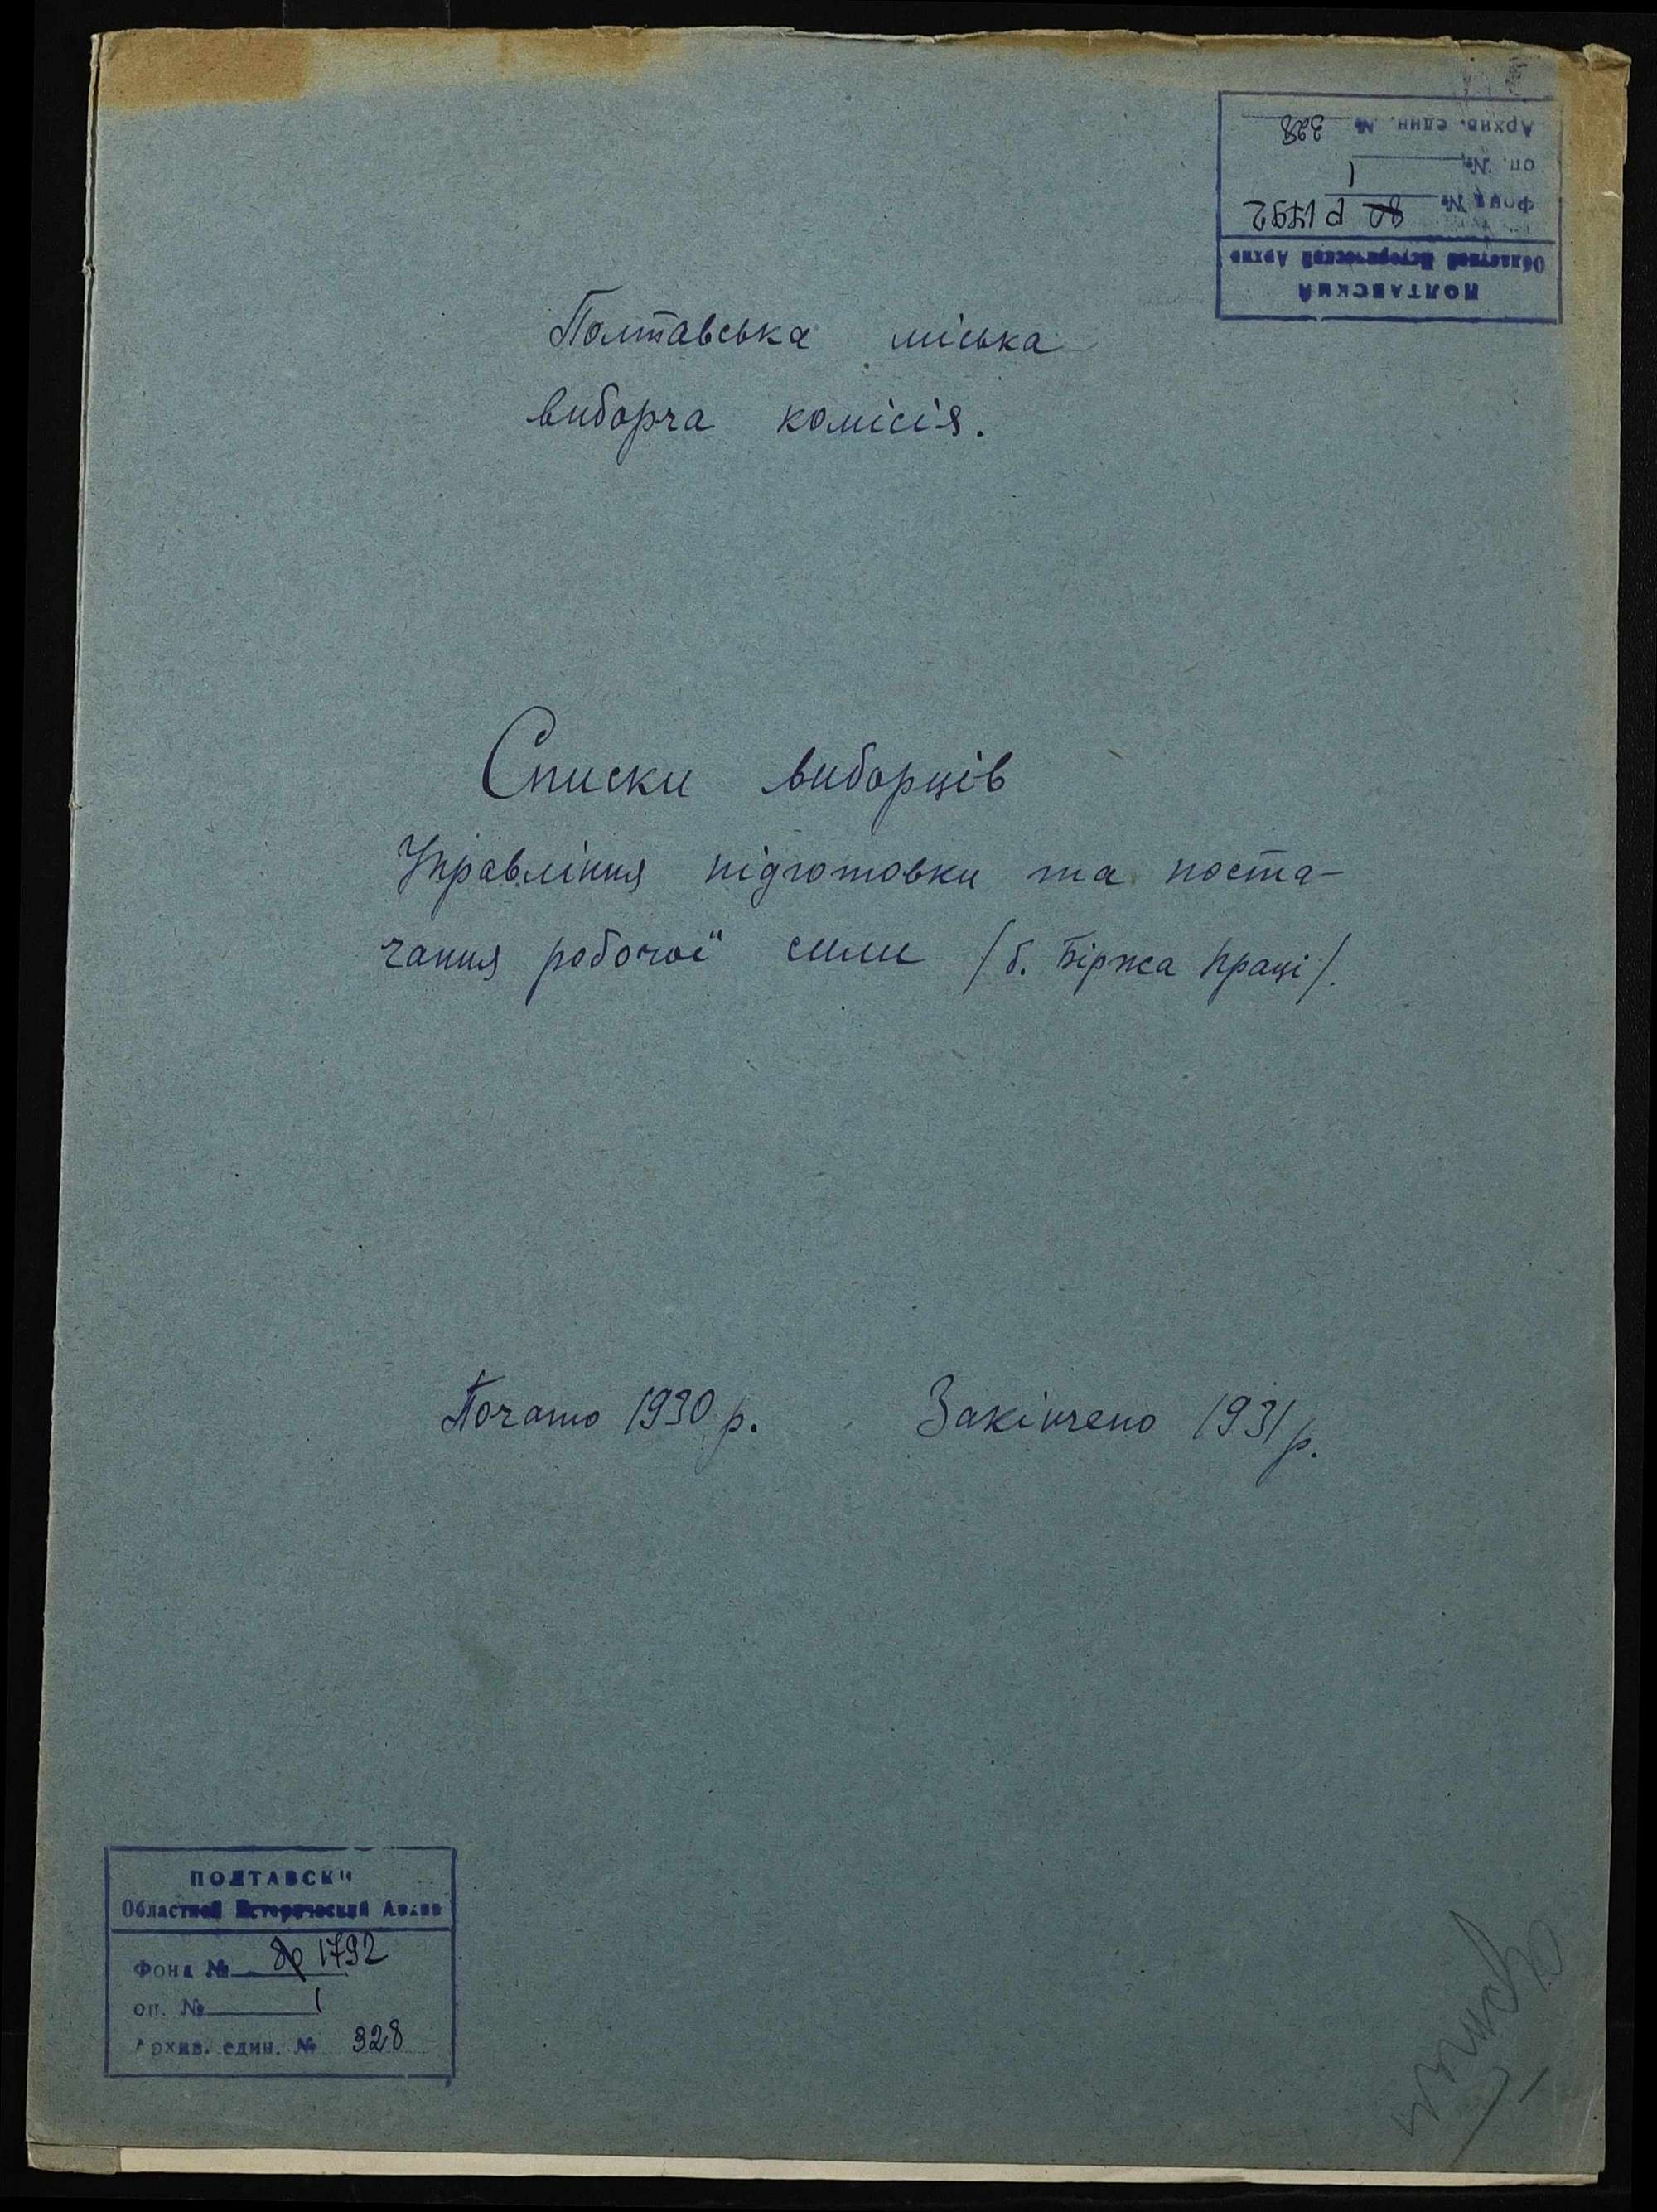 ПОЛТАВСКИЙ
Областной Исторический Архив
Фонд № Р 1792
оп. № 1
Архив. един. № 328
Полтавська міська
виборча комісія.
Списки виборців
Управління підготовки та поста-
чання робочої сили /б. Біржа праці/.
Почато 1930 р. Закінчено 1931 р.
ПОЛТАВСКИ
Областной Исторический Архив
Фонд № р 1792
оп. № 1
Архив. един. № 328